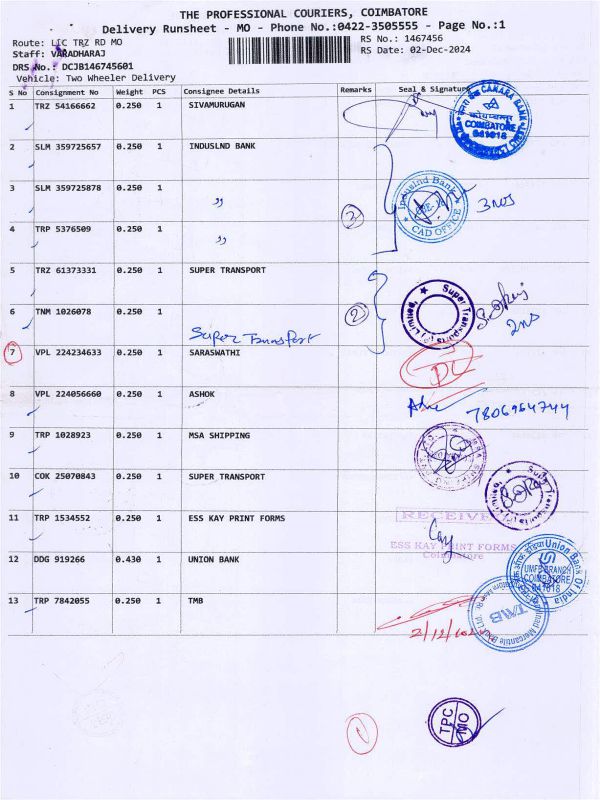 THE PROFESSIONAL COURIERS, COIMBATORE
Delivery Runsheet - MO - Phone No.:0422-3505555 - Page No.:1
Route: LIC TRZ RD MO
RS No.: 1467456
Staff: VARADHARAJ
RS Date: 02-Dec-2024
DRS No.: DCJB146745601
Vehicle: Two Wheeler Delivery
S No Consignment No Weight PCS Consignee Details Remarks Seal & Signature
1 TRZ 54166662 0.250 1 SIVAMURUGAN
CANARA BANK
COIMBATORE
641018
2 SLM 359725657 0.250 1 INDUSLND BANK
3 SLM 359725878 0.250 1 ,,
IndusInd Bank
CAD OFFICE
3 NOS
3
4 TRP 5376509 0.250 1 ,,
5 TRZ 61373331 0.250 1 SUPER TRANSPORT
6 TNM 1026078 0.250 1 Super Transport
2
Super Transports (P) Limited,
2 NS
7 VPL 224234633 0.250 1 SARASWATHI
DL
8 VPL 224056660 0.250 1 ASHOK
7806954744
9 TRP 1028923 0.250 1 MSA SHIPPING
10 COK 25070843 0.250 1 SUPER TRANSPORT
Super Transports (P) Limited,
11 TRP 1534552 0.250 1 ESS KAY PRINT FORMS
RECEIVED
ESS KAY PRINT FORMS
Coimbatore
12 DDG 919266 0.430 1 UNION BANK
Union Bank Of India
UMFB BRANCH
COIMBATORE
641018
13 TRP 7842055 0.250 1 TMB
TMB
Tamilnad Mercantile Bank Ltd.
2/12/2024
1
TPC
MO